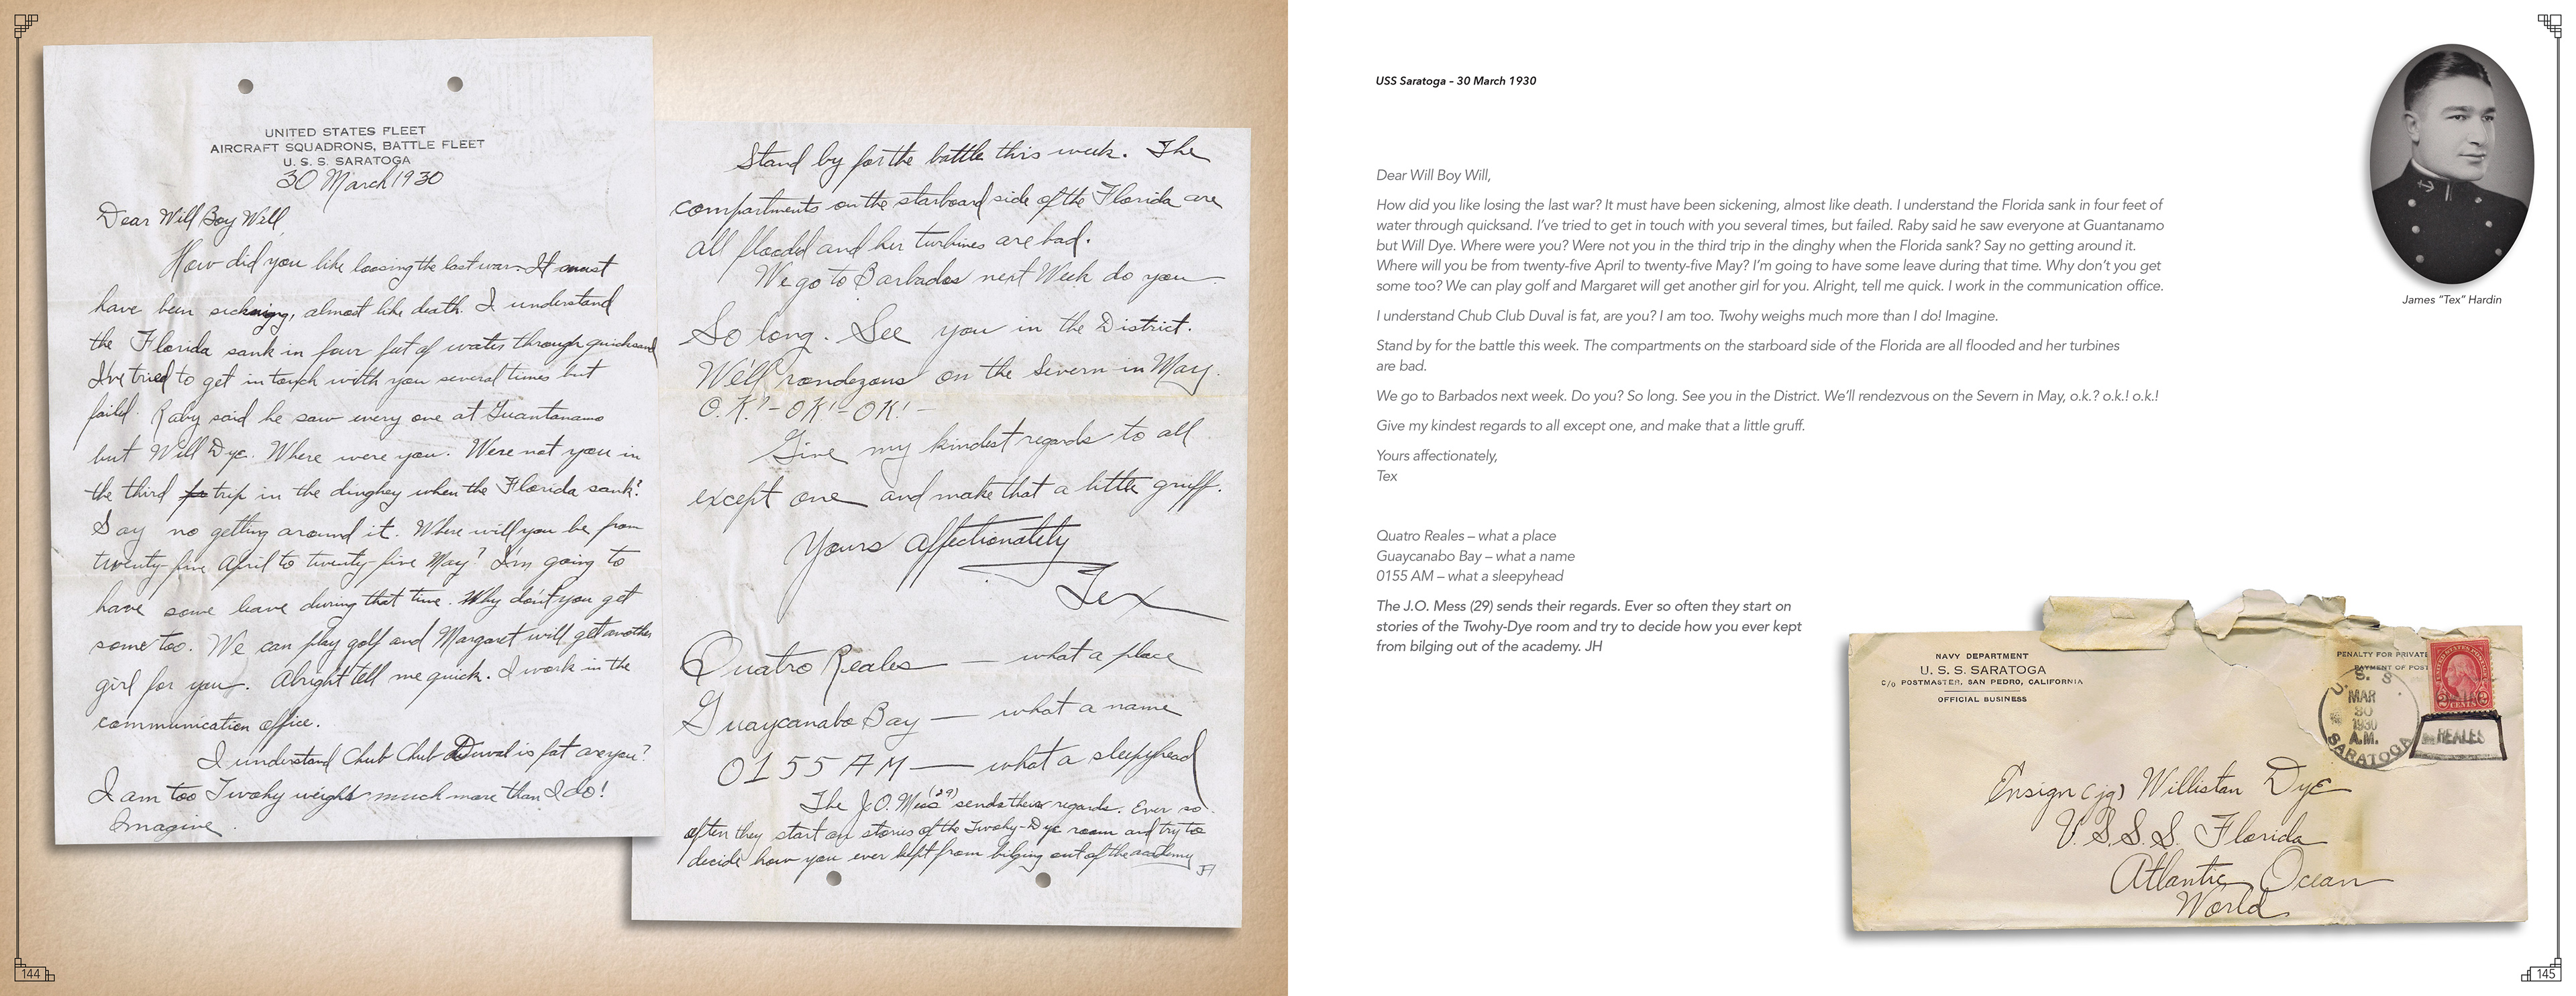 UNITED STATES FLEET
AIRCRAFT SQUADRONS, BATTLE FLEET
U. S. S. SARATOGA
30 March 1930
Dear Will Boy Will,
How did you like loosing the last war. It must
have been sickning, almost like death. I understand
the Florida sank in four feet of water through quicksand
I've tried to get in touch with you several times but
failed. Raby said he saw every one at Guantanamo
but Will Dye. Where were you. Were not you in
the third trip in the dinghey when the Florida sank?
Say no getting around it. Where will you be from
twenty-five April to twenty-five May? I'm going to
have some leave during that time. Why don't you get
some too. We can play golf and Margaret will get another
girl for you. Alright tell me quick. I work in the
communication office.
I understand Chub Chub Duval is fat are you?
I am too Twohy weighs much more than I do!
Imagine.
144
Stand by for the battle this week. The
compartments on the starboard side of the Florida are
all flooded and her turbines are bad.
We go to Barbados next Week do you
So long. See you in the District.
We'll rondezous on the Severn in May.
O.K.? - OK! - OK! -
Give my kindest regards to all
except one and make that a little gruff.
Yours affectionately
Tex
Quatro Reales — what a place
Guaycanabo Bay — what a name
0155 AM — what a sleepyhead
The J.O. Mess (29) sends their regards. Ever so
often they start on stories of the Twohy-Dye room and try to
decide how you ever kept from bilging out of the academy
JH
USS Saratoga – 30 March 1930
Dear Will Boy Will,
How did you like losing the last war? It must have been sickening, almost like death. I understand the Florida sank in four feet of
water through quicksand. I've tried to get in touch with you several times, but failed. Raby said he saw everyone at Guantanamo
but Will Dye. Where were you? Were not you in the third trip in the dinghy when the Florida sank? Say no getting around it.
Where will you be from twenty-five April to twenty-five May? I'm going to have some leave during that time. Why don't you get
some too? We can play golf and Margaret will get another girl for you. Alright, tell me quick. I work in the communication office.
I understand Chub Club Duval is fat, are you? I am too. Twohy weighs much more than I do! Imagine.
Stand by for the battle this week. The compartments on the starboard side of the Florida are all flooded and her turbines
are bad.
We go to Barbados next week. Do you? So long. See you in the District. We'll rendezvous on the Severn in May, o.k.? o.k.! o.k.!
Give my kindest regards to all except one, and make that a little gruff.
Yours affectionately,
Tex
Quatro Reales – what a place
Guaycanabo Bay – what a name
0155 AM – what a sleepyhead
The J.O. Mess (29) sends their regards. Ever so often they start on
stories of the Twohy-Dye room and try to decide how you ever kept
from bilging out of the academy. JH
James "Tex" Hardin
NAVY DEPARTMENT
U. S. S. SARATOGA
C/O POSTMASTER, SAN PEDRO, CALIFORNIA
OFFICIAL BUSINESS
PENALTY FOR PRIVATE
PAYMENT OF POST
U. S. S.
MAR
30
1930
A.M.
SARATOGA
UNITED STATES POSTAGE
2 CENTS 2
REALES
Ensign (jg) Williston Dye
U.S.S.S. Florida
Atlantic Ocean
World
145